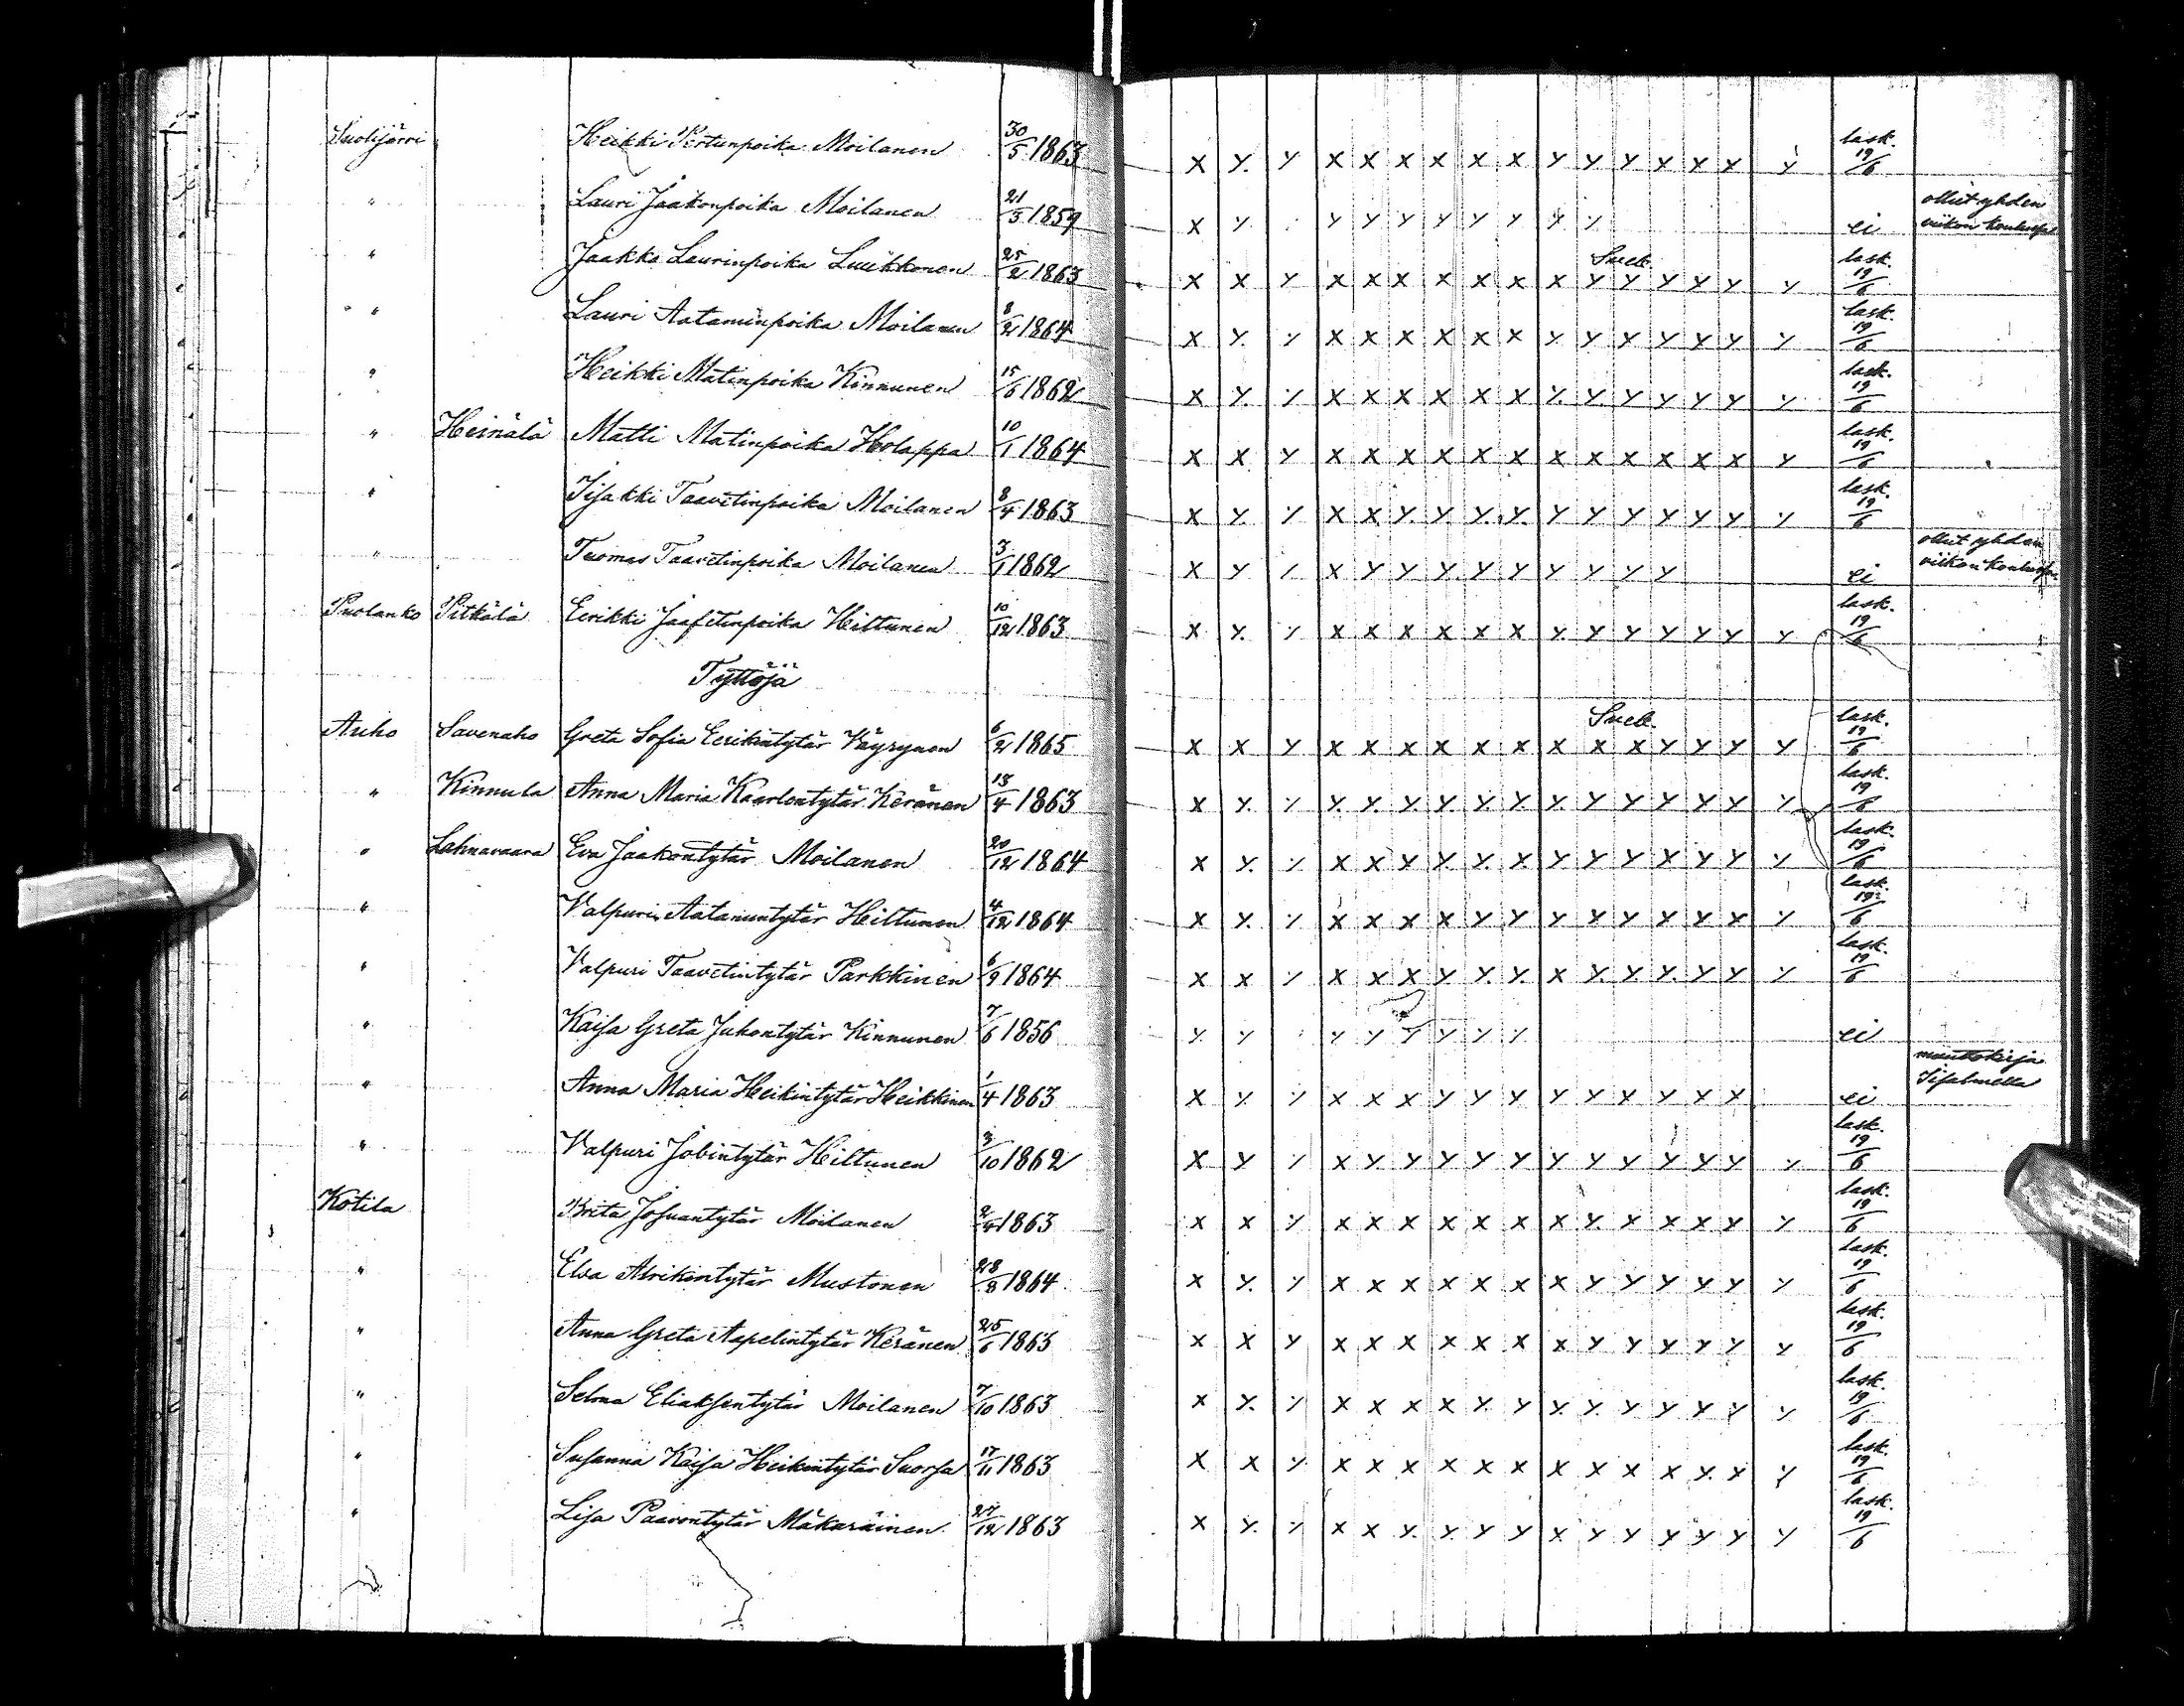 Suolijärvi Heikki Pertunpoika Moilanen 30/5 1863 x y y x x x x x x y y y x x x y lask. 19/6
" Lauri Jaakonpoika Moilanen 21/3 1859 x y y y y y y y y y ei ollut yhden viikon koulussa
" Jaakko Laurinpoika Luukkonen 25/2 1863 x x y x x x x x x x y y y y y y lask. 19/6
" Lauri Aataminpoika Moilanen 8/2 1864 x y y x x x x x x y y y y y y y lask. 19/6
" Heikki Matinpoika Kinnunen 15/6 1862 x y y x x x x x x y y y y y y y lask. 19/6
" Heinälä Matti Matinpoika Holappa 10/1 1864 x x y x x x x x x x x x x x x y lask. 19/6
" Iisakki Taavetinpoika Moilanen 8/4 1863 x y y x x y y y y y y y y y y y lask. 19/6
" Tuomas Taavetinpoika Moilanen 3/1 1862 x y y x y y y y y y y y y ei ollut yhden viikon koulussa
Puolanko Pitkälä Eerikki Jaafetinpoika Hiltunen 10/12 1863 x y y x x x x x x y y y y y y y lask. 19/6
Tyttöjä
Auho Savenaho Greta Sofia Eerikintytär Väyrynen 6/2 1865 x x y x x x x x x x x x y y y y lask. 19/6
" Kinnula Anna Maria Kaarlontytär Keränen 13/4 1863 x y y y y y y y y y y y y y y y lask. 19/6
" Lahnavaara Eva Jaakontytär Moilanen 20/12 1864 x y y x x x y y x y y y x y y y lask. 19/6
" Valpuri Aatamintytär Hiltunen 4/12 1864 x y y x x x x y y y x y x x x y lask. 19/6
" Valpuri Taavetintytär Parkkinen 6/9 1864 x x y x x x y y y x y y y y y y lask. 19/6
" Kaisa Greta Juhontytär Kinnunen 7/6 1856 y y y y y y y y ei
" Anna Maria Heikintytär Heikkinen 1/4 1863 x y y x x x y y y y y y x x x ei muuttokirja Iisalmella
" Valpuri Jobintytär Hiltunen 3/10 1862 x y y x y y y y y y y y y y y y lask. 19/6
Kotila Brita Josuantytär Moilanen 2/4 1863 x x y x x x x x x x y x x x y y lask. 19/6
" Elsa Abrikintytär Mustonen 28/8 1864 x y y x x x x x x x y y y y y y lask. 19/6
" Anna Greta Aapelintytär Keränen 25/6 1863 x x y x x x x x x x y y y y y y lask. 19/6
" Selma Eliaksentytär Moilanen 7/10 1863 x y y x x x x y y y y y y y y y lask. 19/6
" Susanna Kaisa Heikintytär Suorsa 17/11 1863 x x y x x x x x x x x x x y x y lask. 19/6
" Lisa Paavontytär Mäkäräinen 27/12 1863 x y y x x y y y y x y y y y y y lask. 19/6